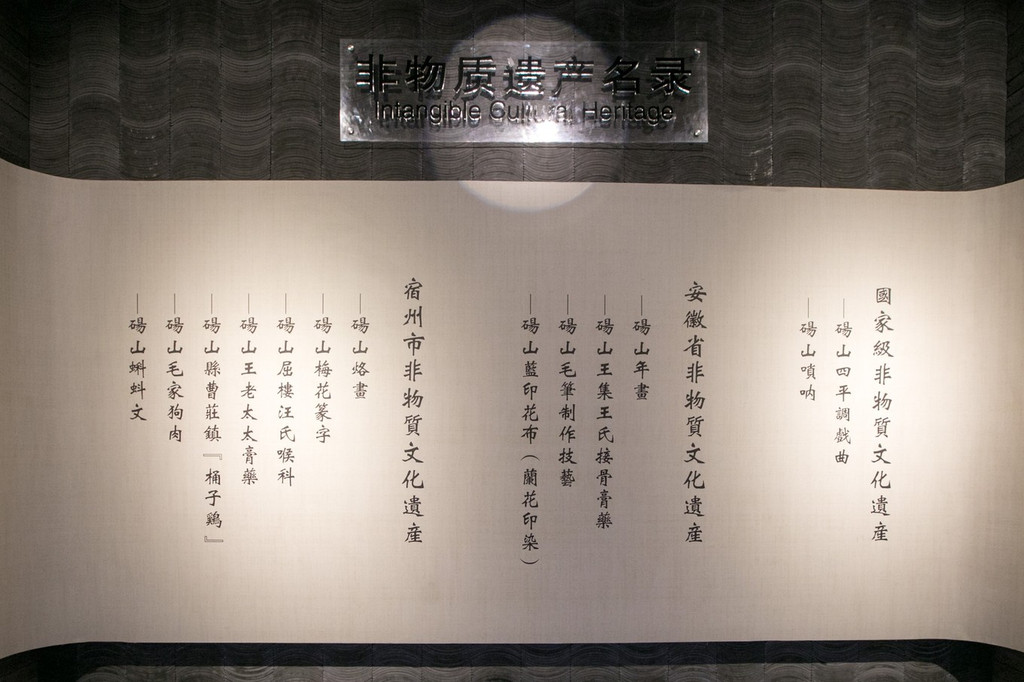 非物质遗产名录
Intangible Cultural Heritage
國家級非物質文化遺産
——碭山四平調戲曲
——碭山嗩吶
安徽省非物質文化遺産
——碭山年畫
——碭山王集王氏接骨膏藥
——碭山毛筆制作技藝
——碭山藍印花布（蘭花印染）
宿州市非物質文化遺産
——碭山烙畫
——碭山梅花篆字
——碭山屈樓汪氏喉科
——碭山王老太太膏藥
——碭山縣曹莊鎮『桶子鷄』
——碭山毛家狗肉
——碭山蝌蚪文